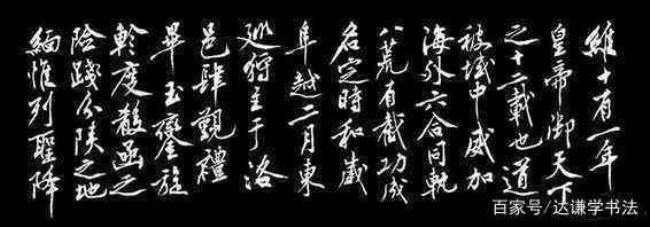 維十有一年
皇帝御天下
之十二載也道
被域中威加
海外六合同軌
八荒有截功成
名定時和歲
阜越二月東
巡狩至于洛
邑肆覲禮
畢玉鑾旋
軫度殽函之
險踐分陝之地
緬惟列聖降
百家号/达谦学书法